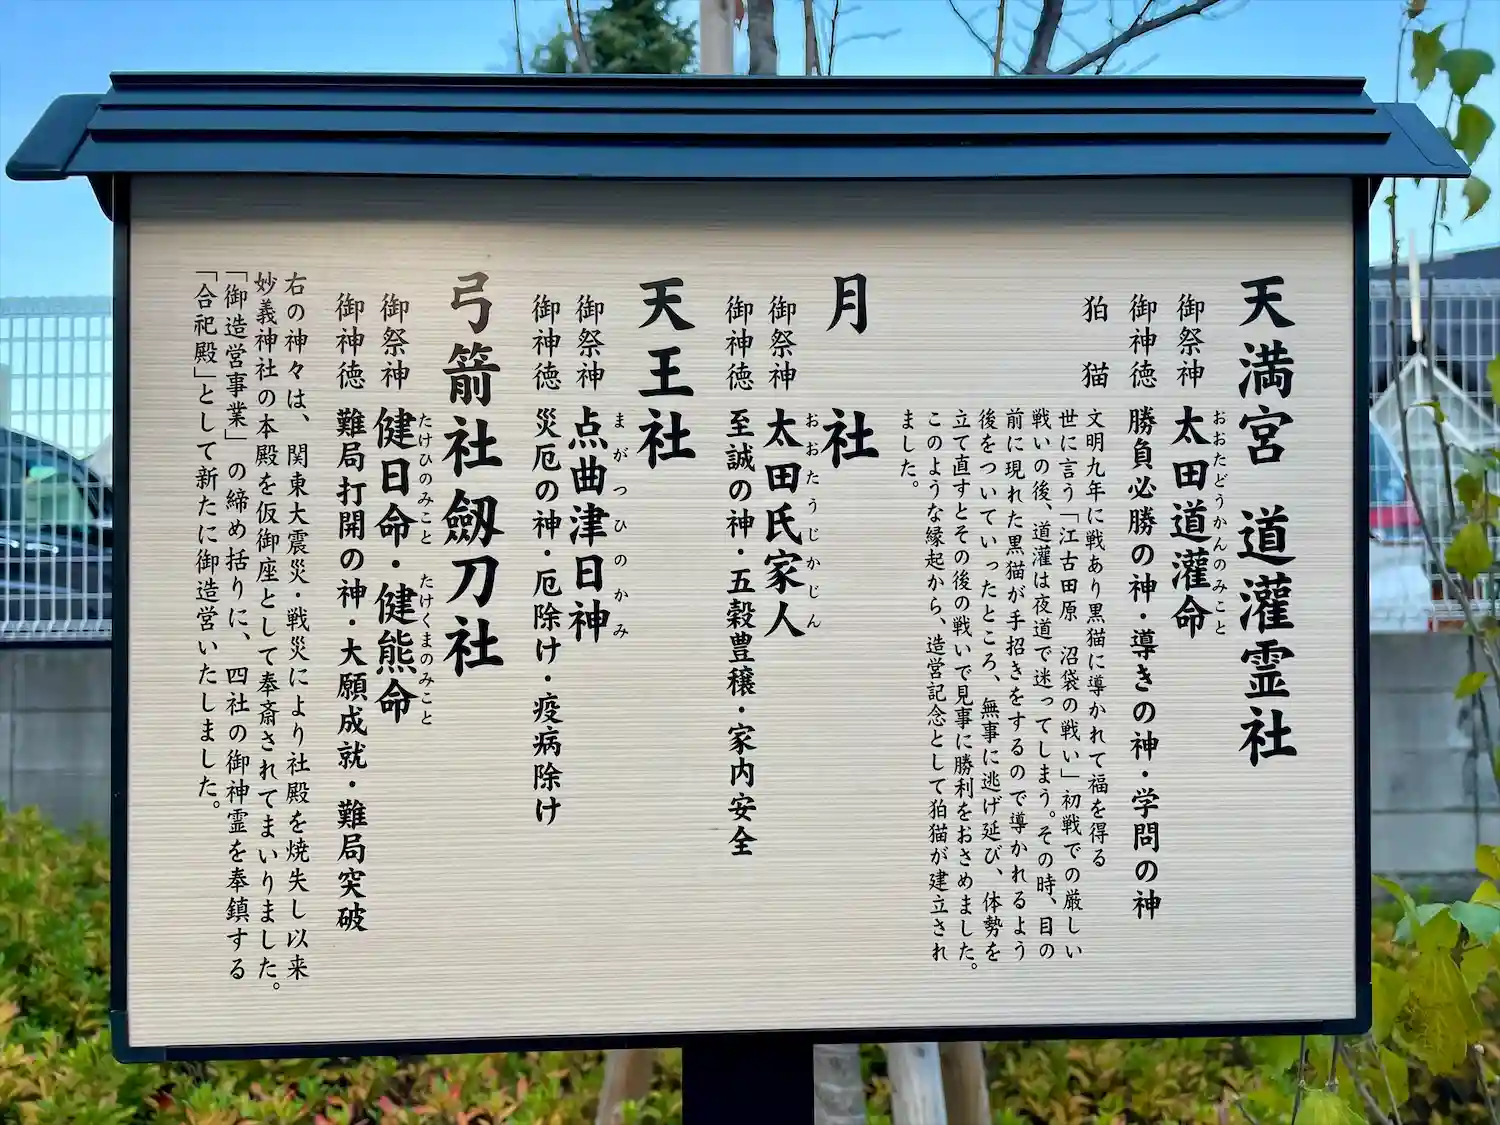 天満宮 道灌霊社
御祭神 太田道灌命
おおたどうかんのみこと
御神徳 勝負必勝の神・導きの神・学問の神
狛猫 文明九年に戦あり黒猫に導かれて福を得る
世に言う「江古田原 沼袋の戦い」初戦での厳しい
戦いの後、道灌は夜道で迷ってしまう。その時、目の
前に現れた黒猫が手招きをするので導かれるよう
後をついていったところ、無事に逃げ延び、体勢を
立て直すとその後の戦いで見事に勝利をおさめました。
このような縁起から、造営記念として狛猫が建立され
ました。
月社
御祭神 太田氏家人
おおたうじかじん
御神徳 至誠の神・五穀豊穣・家内安全
天王社
御祭神 点曲津日神
まがつひのかみ
御神徳 災厄の神・厄除け・疫病除け
弓箭社劔刀社
御祭神 健日命・健熊命
たけひのみこと たけくまのみこと
御神徳 難局打開の神・大願成就・難局突破
右の神々は、関東大震災・戦災により社殿を焼失し以来
妙義神社の本殿を仮御座として奉斎されてまいりました。
「御造営事業」の締め括りに、四社の御神霊を奉鎮する
「合祀殿」として新たに御造営いたしました。